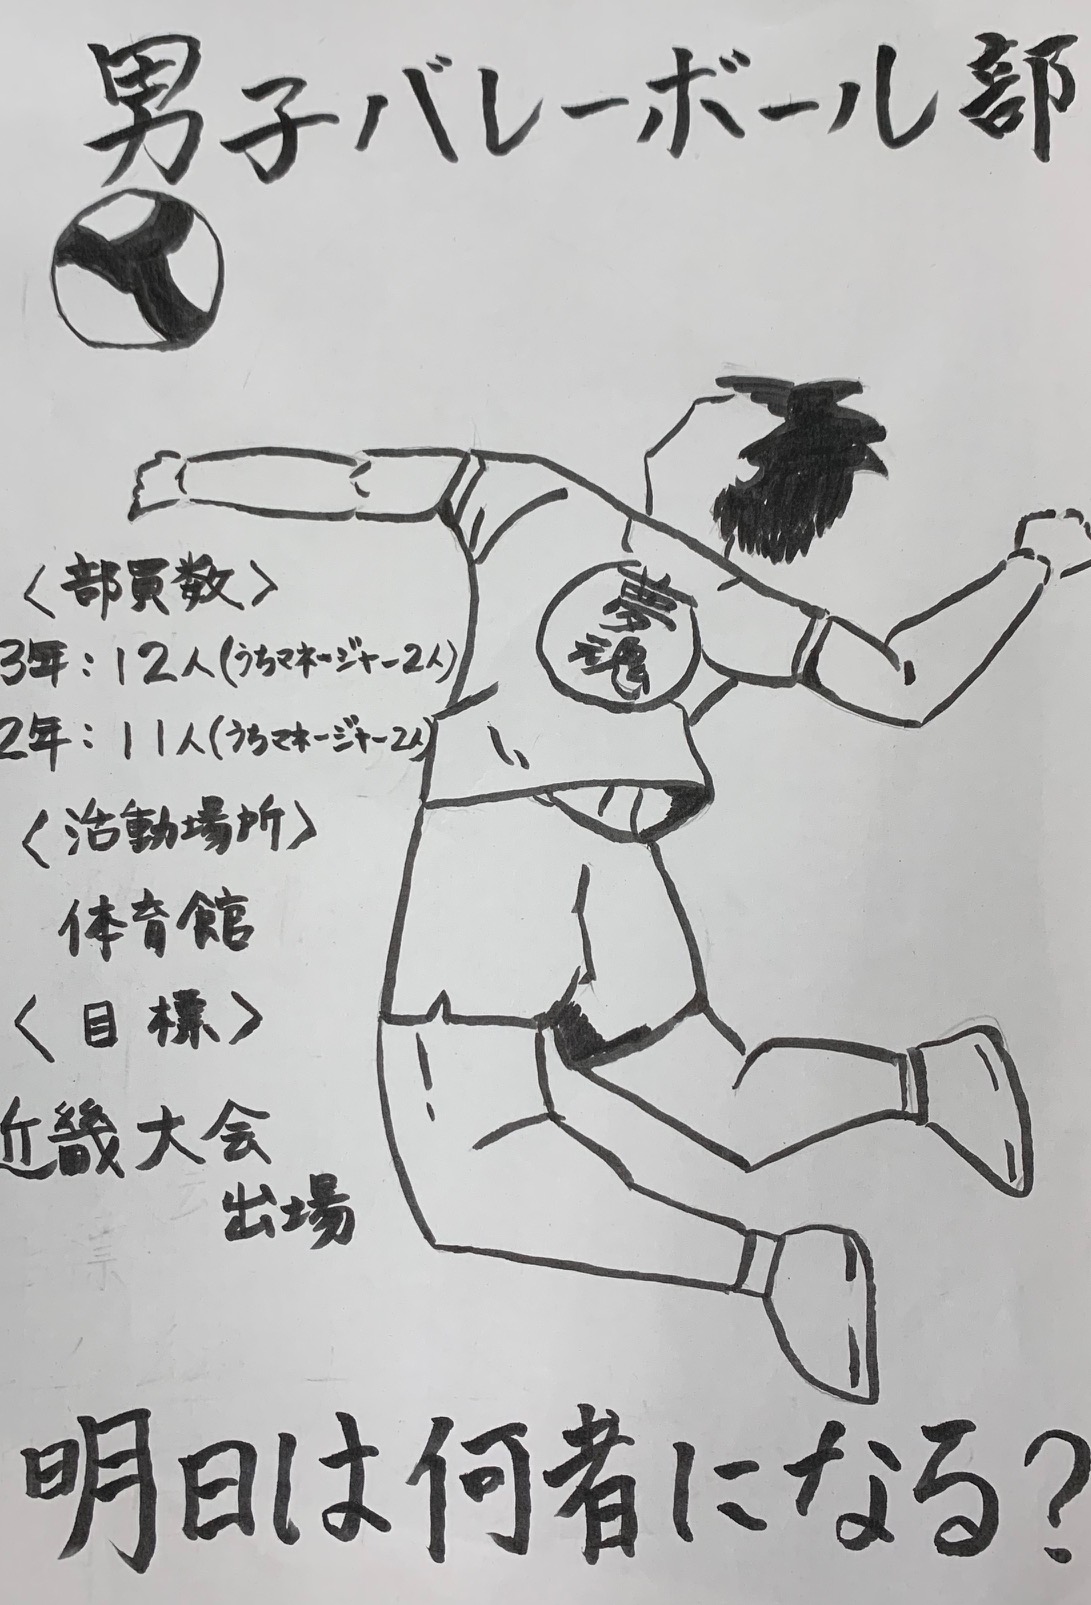 男子バレーボール部
夢
魂
〈部員数〉
3年：12人(うちマネージャー2人)
2年：11人(うちマネージャー2人)
〈活動場所〉
体育館
〈目標〉
近畿大会
出場
明日は何者になる？